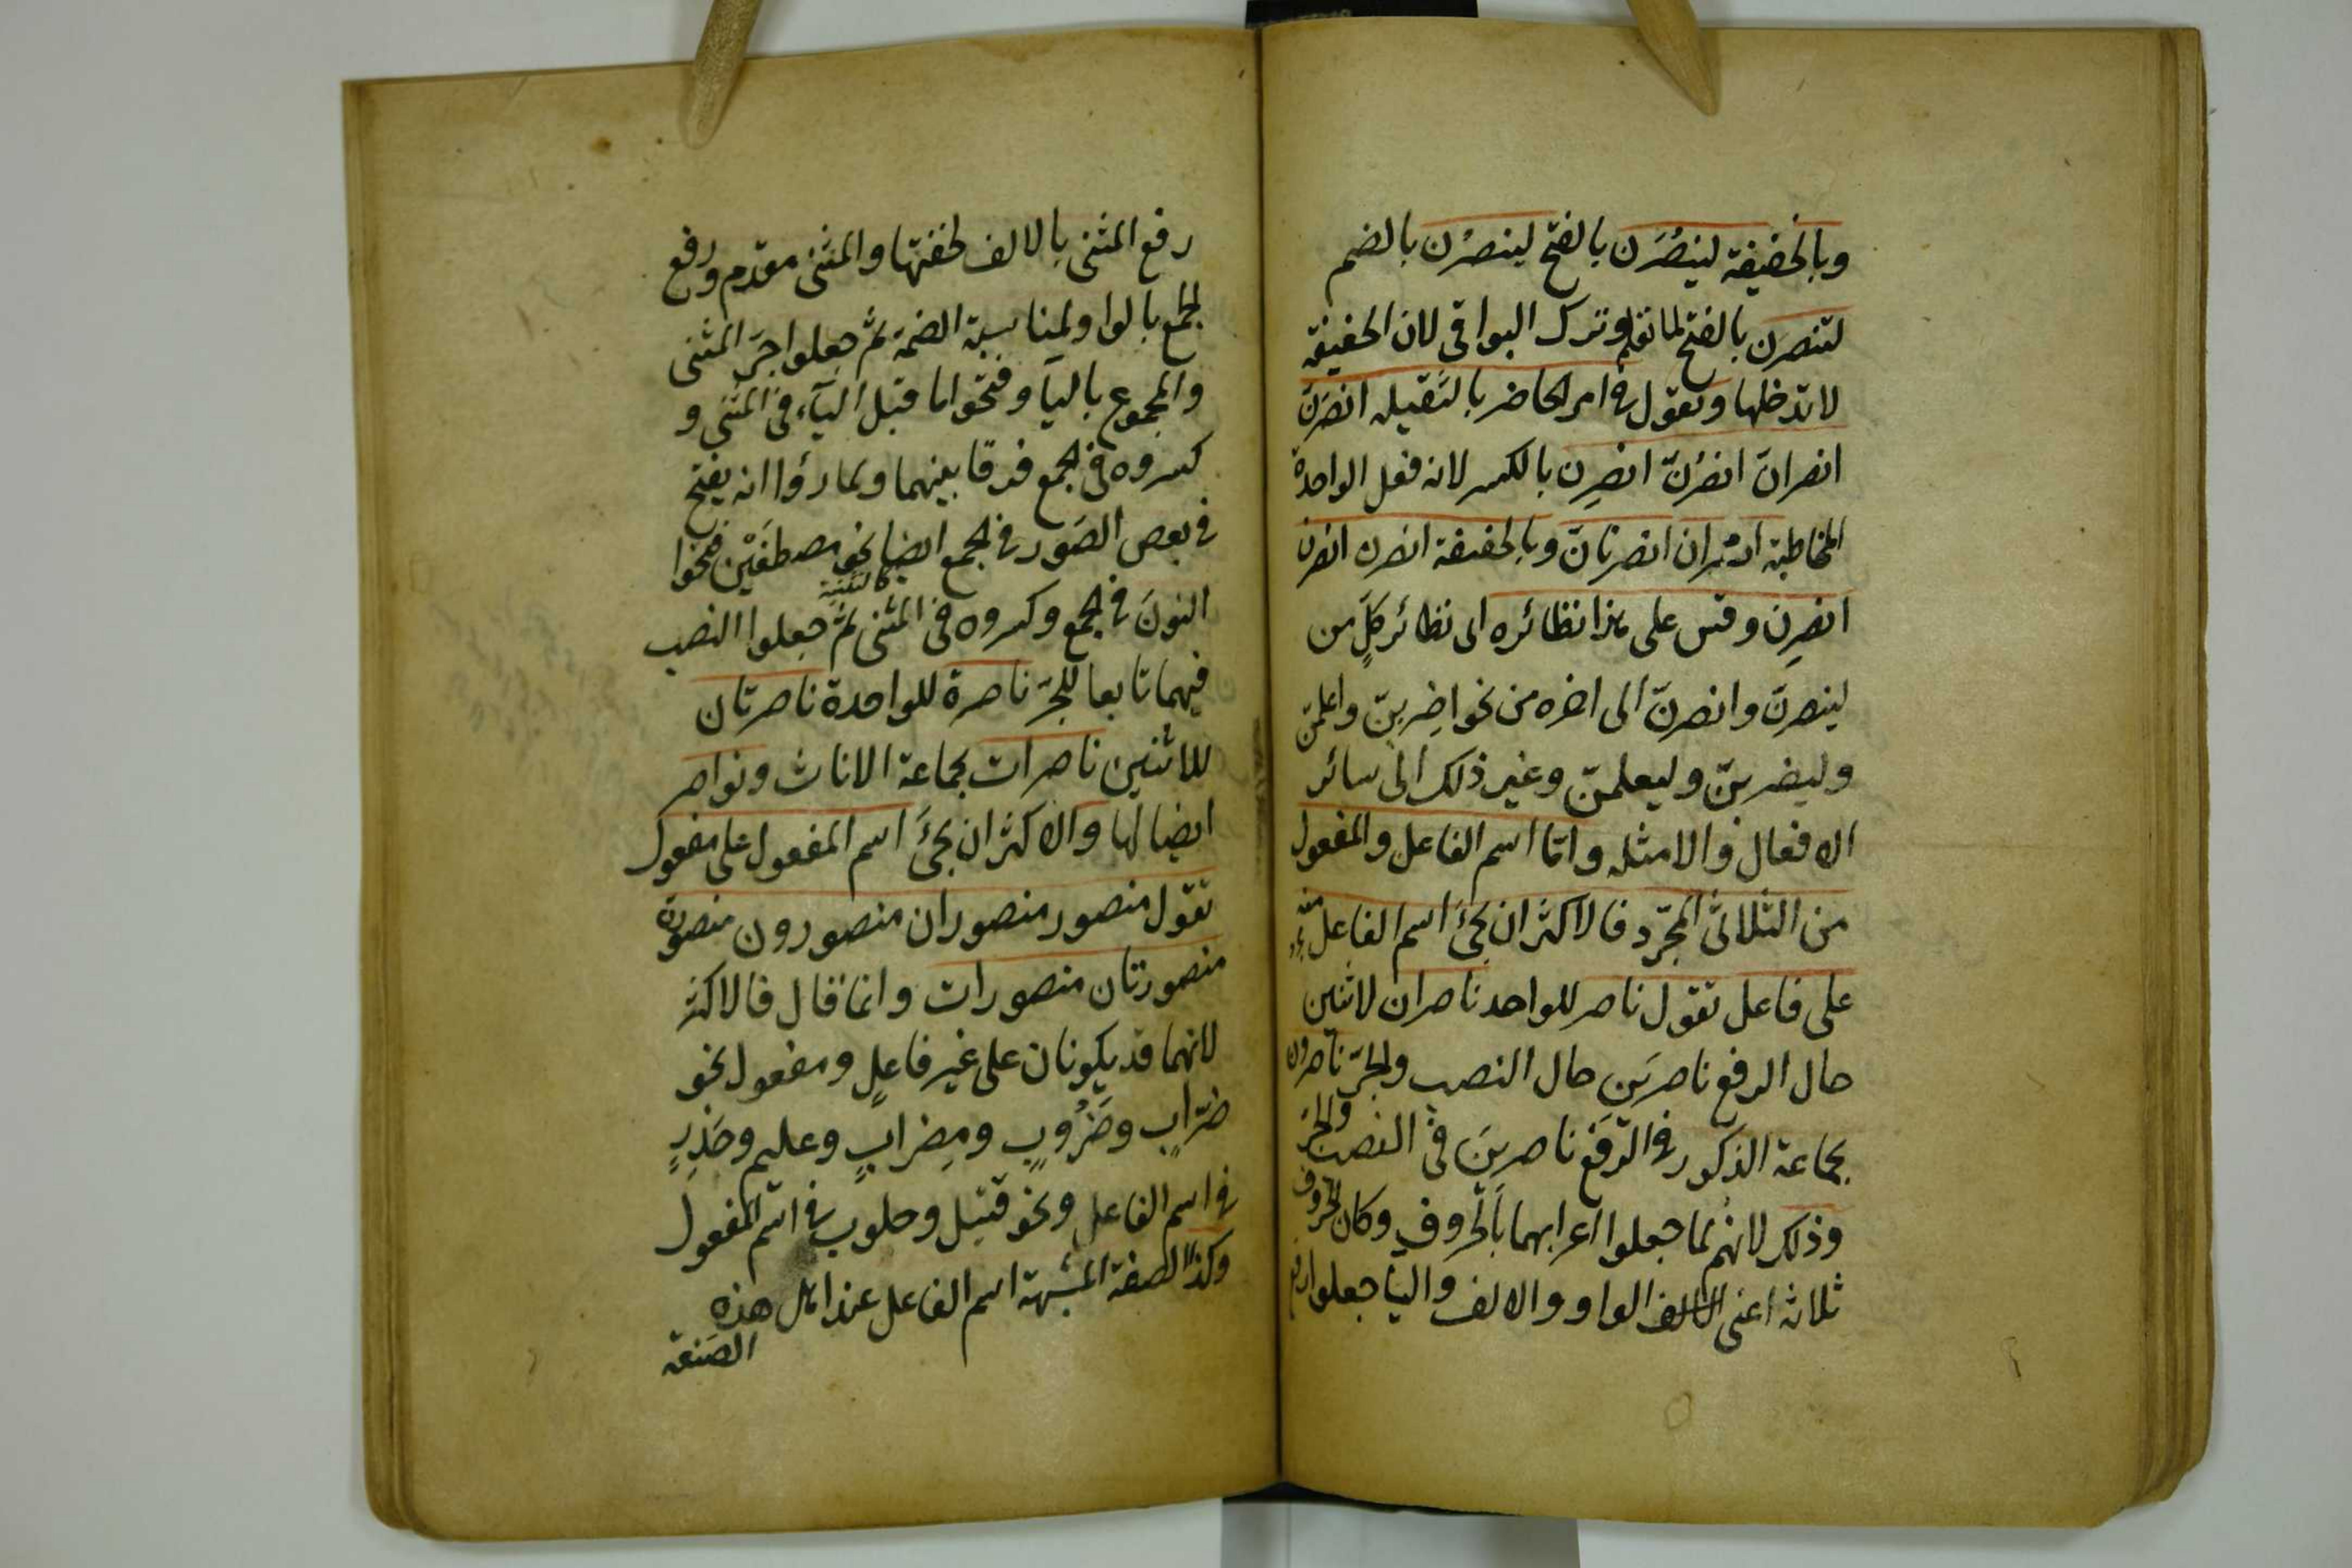 وبالخفيفة لينصُرَن بالفتح لينصرُن بالضم
لتنصرن بالفتح لما تقدم وترك البواقى لان الخفيفة
لا تدخلها وتقول فى امر الحاضر بالثقيلة انصرَنّ
انصرانّ انصرُنّ انصرِن بالكسر لانه فعل الواحدة
المخاطبة انصران انصرنانّ وبالخفيفة انصرن انصرن
انصرِن وقس على هذا نظائره اى نظائر كلٍّ من
لينصرنّ وانصرنّ الى اخره من نحو اضربنّ واعلمنّ
وليضربنّ وليعلمنّ وغير ذلك الى سائر
الافعال والامثلة وامّا اسم الفاعل والمفعول
من الثلاثى المجرّد فالاكثر ان يجئَ اسم الفاعل منه
على فاعل تقول ناصر للواحد ناصران لاثنين
حال الرفع ناصرَين حال النصب والجرّ ناصرون
لجماعة الذكور فى الرّفع ناصرينَ فى النصب والجرّ
وذلك لانهم لما جعلوا اعرابهما بالحروف وكان الحروف
ثلاثة اعنى الواو والالف واليا جعلوا
رفع المثنى بالالف لخفتها والمثنى مقدم ورفع
الجمع بالواو لمناسبة الضمة ثم جعلوا جرّ المثنى
والمجموع باليآ وفتحوا ما قبل اليآء فى المثنى و
كسروه فى الجمع فرقا بينهما ولما رؤا انه يفتح
فى بعض الصّور فى الجمع ايضا نحو مصطفَيْن فتحوا
كالتثنية
النونَ فى الجمع وكسروه فى المثنى ثم جعلوا النصب
فيهما تابعا للجرّ ناصرة للواحدة ناصرتان
للاثنين ناصرات لجماعة الاناث ونواصر
ايضا لها والاكثر ان يجئَ اسم المفعول على مفعول
تقول منصور منصوران منصورون منصورة
منصورتان منصورات وانما قال فالاكثر
لانهما قد يكونان على غير فاعلٍ ومفعول نحو
ضرّابٍ وضَرُوبٍ ومِضرابٍ وعليم وحَذِرٍ
فى اسم الفاعل ونحو قتيل وحلوب فى اسم المفعول
وكذا الصفة المشبهة اسم الفاعل عند اهل هذه
الصنعة